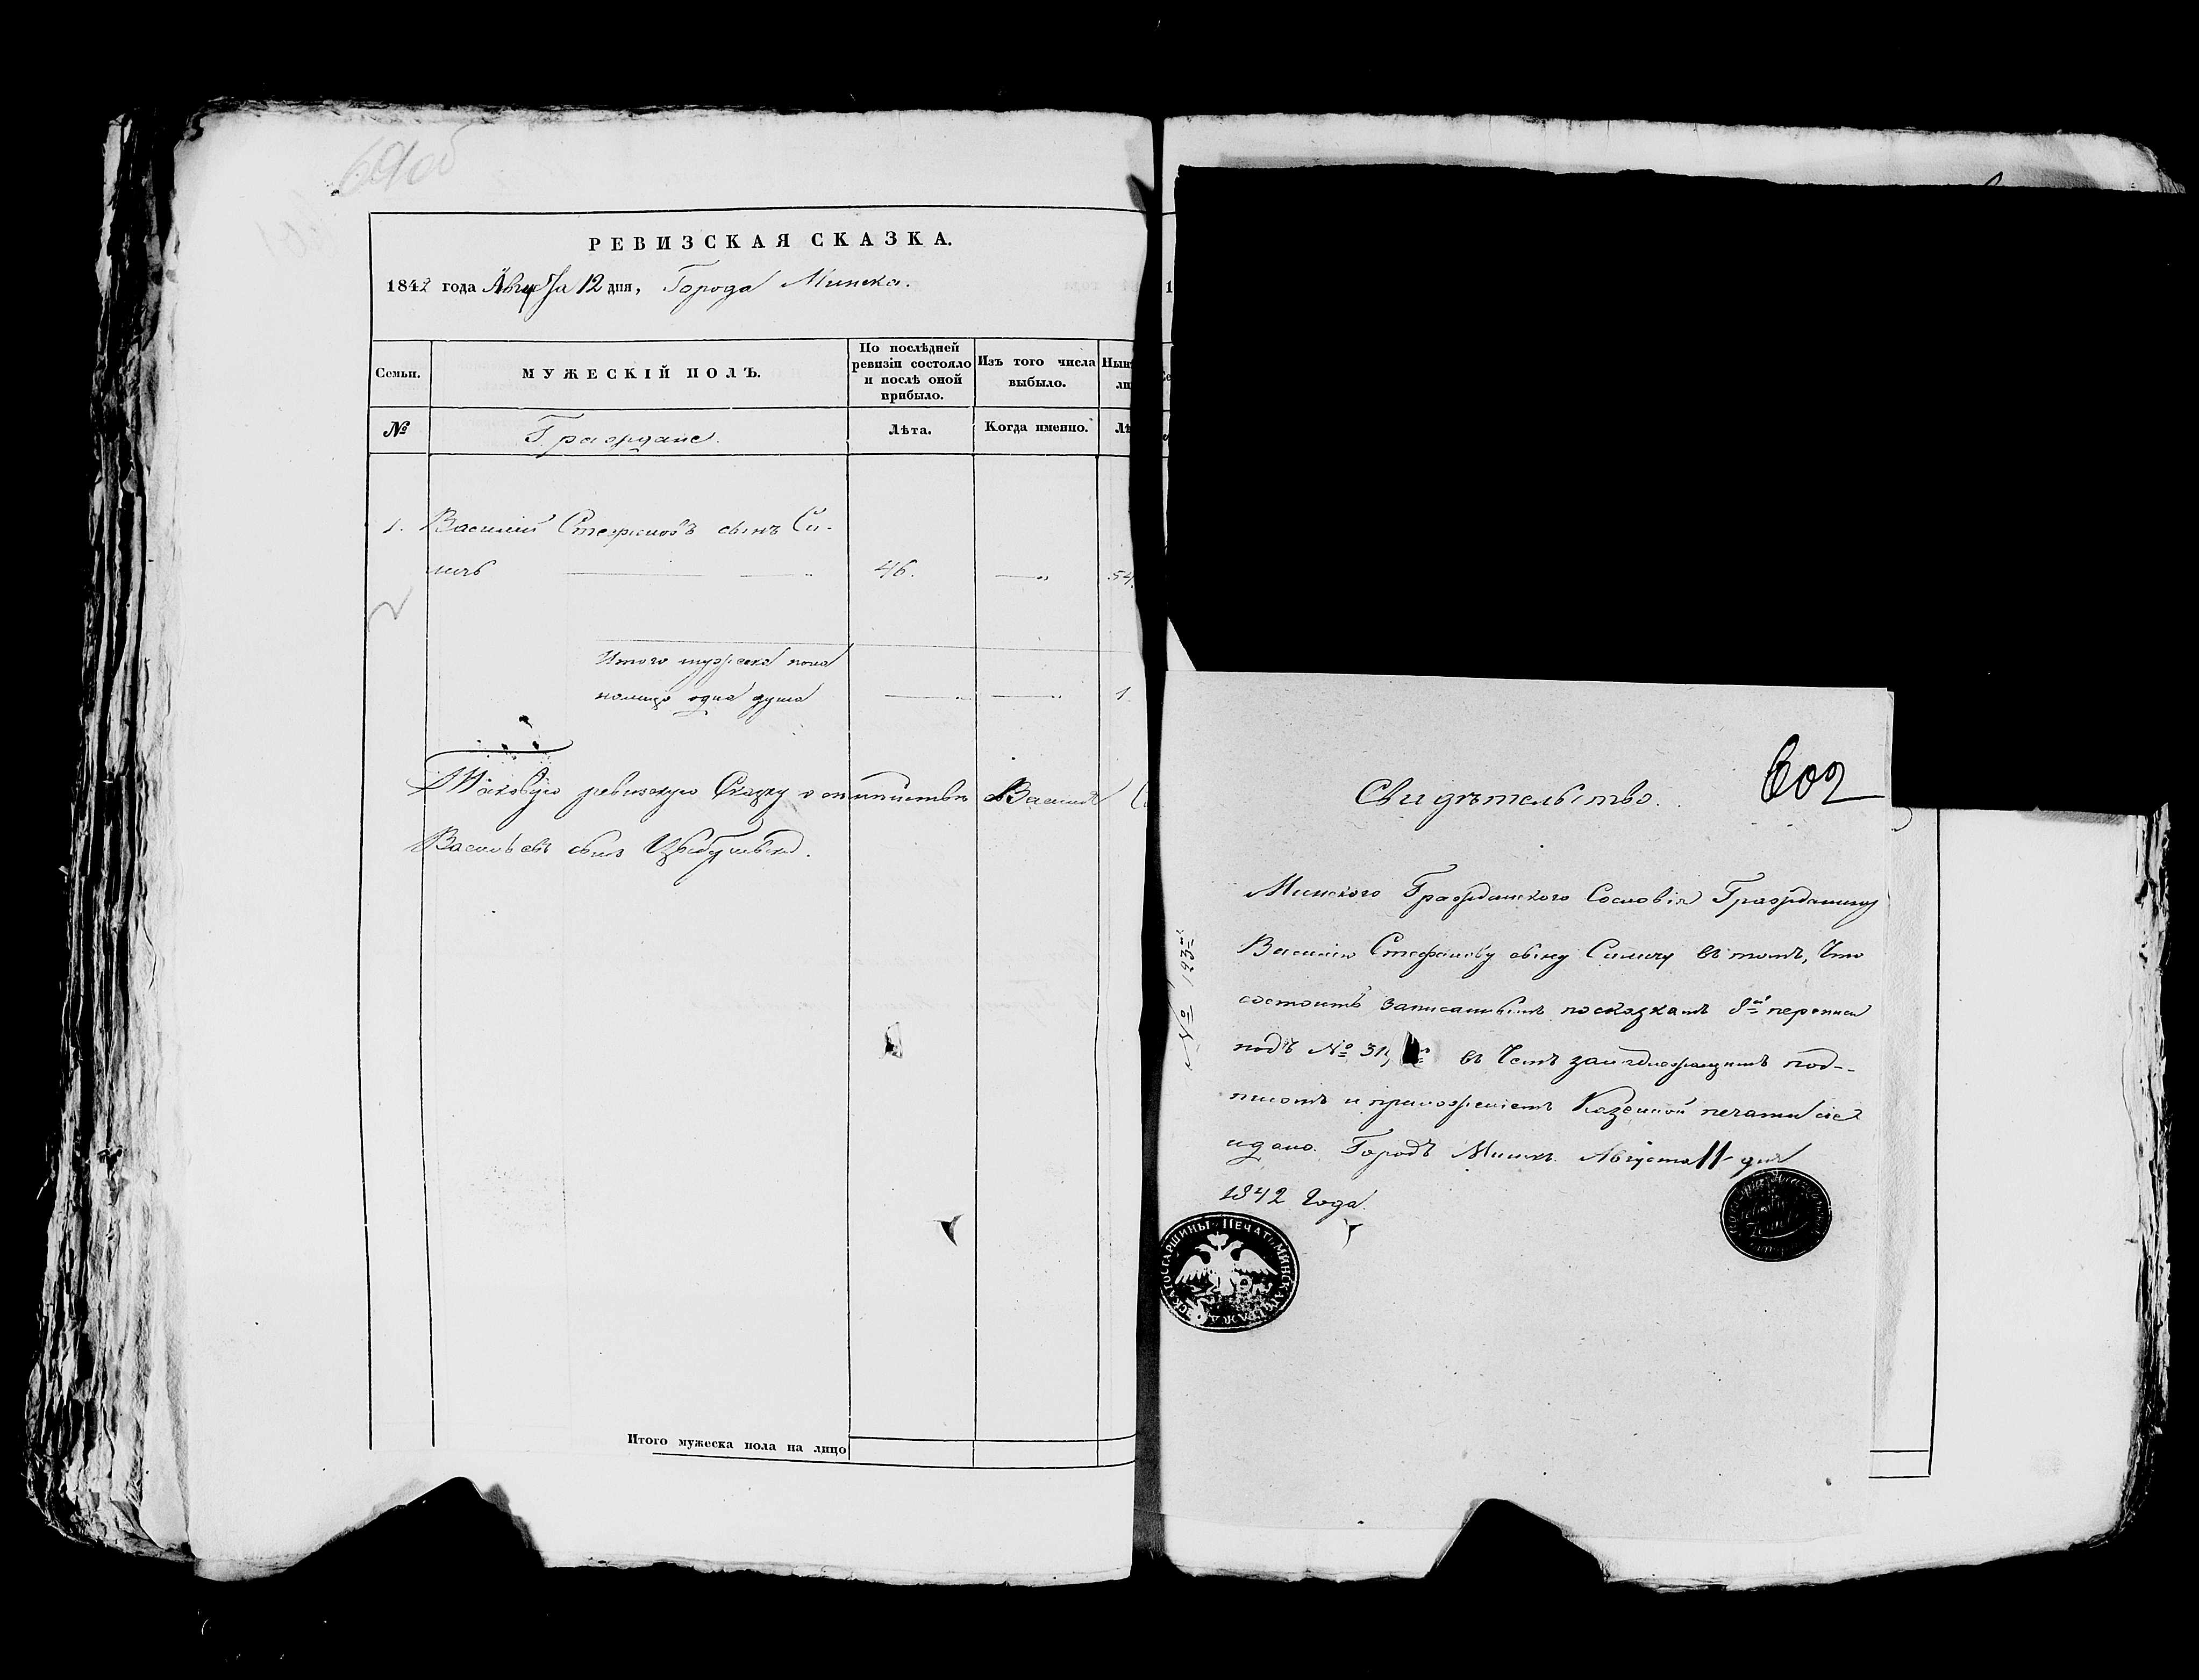 601об
РЕВИЗСКАЯ СКАЗКА.
1842 года Августа 12 дня, Города Минска.
Семьи.
МУЖЕСКІЙ ПОЛЪ.
По послѣдней ревизіи состояло и послѣ оной прибыло.
Изъ того числа выбыло.
№
Граждане.
Лѣта.
Когда именно.
1. Василий Стефановъ сынъ Си-
личъ 46. 54.
Итого мужеска пола
налицо одна душа 1
Таковую ревизскую Сказку о
Васильевъ сынъ
Итого мужеска пола на лицо
602
Свидѣтельство.
Минского Гражданского Сословія Гражданину
Василию Стефанову сыну Силичу въ томъ, Что
состоитъ записаннымъ по сказкамъ 8й переписи
подъ № 31, въ Чемъ за подписомъ под-
писомъ и приложеніемъ Казенной печати сіе
и дано. Городъ Минскъ. Августа 11 дня
1842 Года.
ПЕЧАТЬ МИНСКАГО СТАРШИНЫ